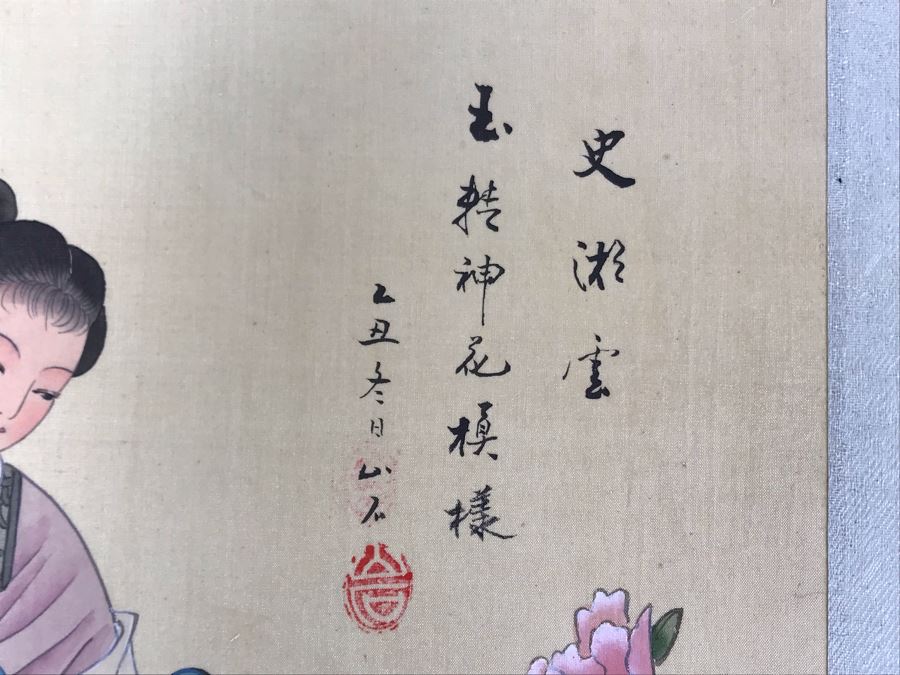 史湘雲
玉精神花模樣
乙丑冬日山石